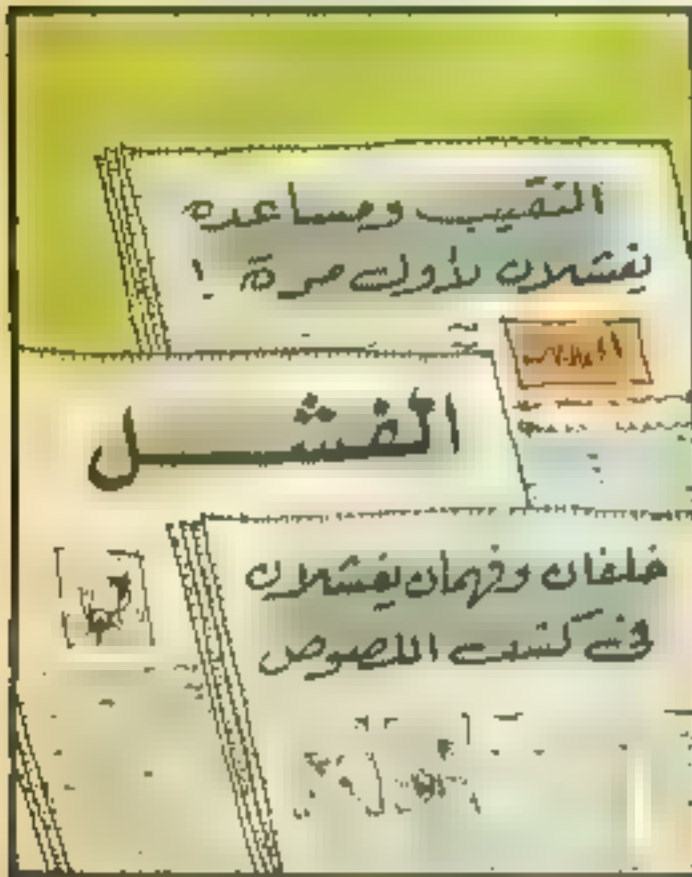 النقيب ومساعده
يفشلان لأول مرة !
الفشل
خلفان وفهمان يفشلان
في كشف اللصوص